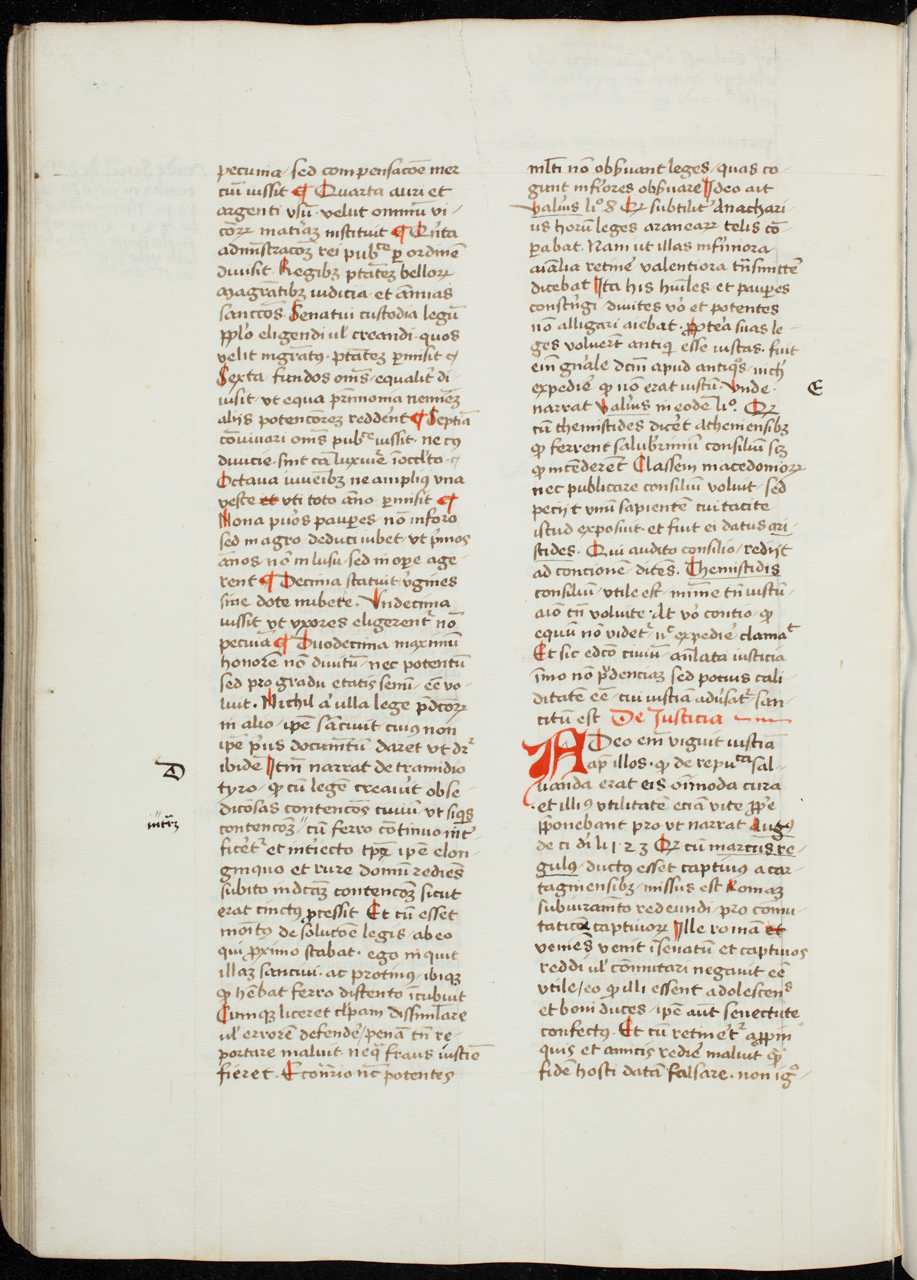 pecunia sed compensacōe mer
ciū iussit ¶ Quarta auri et
argenti vsū velut omniū vi
cōꝝ matiaʒ instituit ¶ Qūta
admīstracoʒ rei pubᶜᵉ ꝑ ordinē
diuisit Regibʒ ptātēʒ belloꝝ
magr̄atibʒ iudicia et ānuas
sanctōes Senatui custodia legū
ppl̓o eligendi ul̓ creandi quos
velit mgr̄atꝯ ptātēʒ ꝑmisit
Sexta fundos om̄s equalit̓ di
uisit vt equa prīmonia neminēʒ
alijs potencōreʒ redder̄et ¶ Septīa
cōuiuari om̄s pubᶜᵉ iussit ne cꝯ
diuicie sint cā luxurie ī occl̓to
Octaua iuuēibʒ ne ampliꝯ vna
veste et vti toto āno ꝑmisit ¶
Nona pu̓os pauꝑes nō in foro
sed in agro deduci iubet vt p̓mos
ānos nō in lusu sed in oꝑe age
rent ¶ Decima statuit v̓gīnes
sine dote nubere Vndecima
iussit vt vxores eligerent̃ nō
pecuīa ¶ Duodecima maximū
honorē nō diuitū nec potentū
sed pro gradu etatis semꝑ eē vo
luit Nichil a̓ ulla lege p̄dc̄oꝝ
in alio ip̄e sāciuit cuiꝯ non
ip̄e p̓us documētū daret vt dr̃
ibidē Itm̄ narrat de tramidio
tyro ꝙ cū legē creauīt obse
dicōsas contencōes ciuiū vt siqͥs
contencoʒ cū ferro cōtinuo int̓
ficer̄et̃ et intiecto tpr̄ ip̄e elon
ginquo et rure domū rediēs
subito indcāʒ contencoʒ sicut
erat cinctꝯ p̱cessit Et cū esset
monitꝯ de soluc̄oē legis ab eo
qui p̱ximo stabat ego inquit
illaʒ sanciui ac protinꝯ ibiqʒ
ꝙ hēbat ferro distento īcubuit
Cumqʒ liceret cl̓pam dissimlāre
ul̓ errorē defende̓ penā tn̄ re
portare maluit neqʒ fraus iusticie
fieret Econr̄io nc̄ potentes
D
intr̄ʒ
ml̓ti nō obsuant leges quas co
gunt inf̓iores obsuare Ideo ait
valīus liº 8 Qꝫ subtilit̓ Anachari
us horū leges araneaꝝ telis cō
ꝑabat Nam ut illas infirmora
aīalia retine̓ valentiora tn̄smitte̓
dicebat Ita his hūiles et pauꝑes
constrīgi diuites vº et potentes
nō alligari aiebat Ꝓpter̓a suas le
ges voluer̄t antiqi esse iustas fuit
eīm gn̄ale dcm̄ apud antiqͦs nichˡ
expedire̓ ꝙ nō erat iustū Vnde
narrat Valīus in eodē liº Qꝫ
cū themistides dice̓t Atheniensibʒ
ꝙ ferrent salub̓rimū consiliū scʒ
ꝙ incenderet Classem macedonioꝝ
nec publicare consiliū voluit sed
pecijt vnū sapientē cui tacite
istud exposuit et fuit ei datus ari
stides Qui audito consilio redijt
ad concionē dites Themistidis
consiliū vtile est minime tn̄ iustū
aīo tn̄ voluite At vº contio ꝙ
equū nō videt̃ nͨ expedire̓ clamaᵗ
Et sic edcō ciuiū ānlata iusticia
īmo nō p̄denciaʒ sed potius cali
ditatē eē cui iustiā adūsat̃ san
citū est De Justicia
ADeo em̄ viguit iustiā
ap̱ illos ꝙ de repuᶜᵃ sal
uanda erat eis oīmoda cura
et illiꝯ vtilitatē eciā vite pp̱e
p̄ponebant pro vt narrat Augꝯ
de ci di̓ li 1 2 3 Qꝫ cū marcus re
gulꝯ ductꝯ esset captiuꝯ a car
tagīnensibʒ missus est Romaʒ
sub iuramēto redeundi pro cōmu
tatiōe captiuoꝝ Ille romā et
veniēs venit ī senatū et captiuos
reddi ul̓ cōmutari negauit eē
vtile eo ꝙ illi essent adolescenˢ
et boni duces ip̄e aūt senectute
confectꝯ Et cū retiner̄et̃ a pp̱in
quis et amicis redire̓ maluit q̄ꝫ
fidē hosti datā falsare non igͦ
E